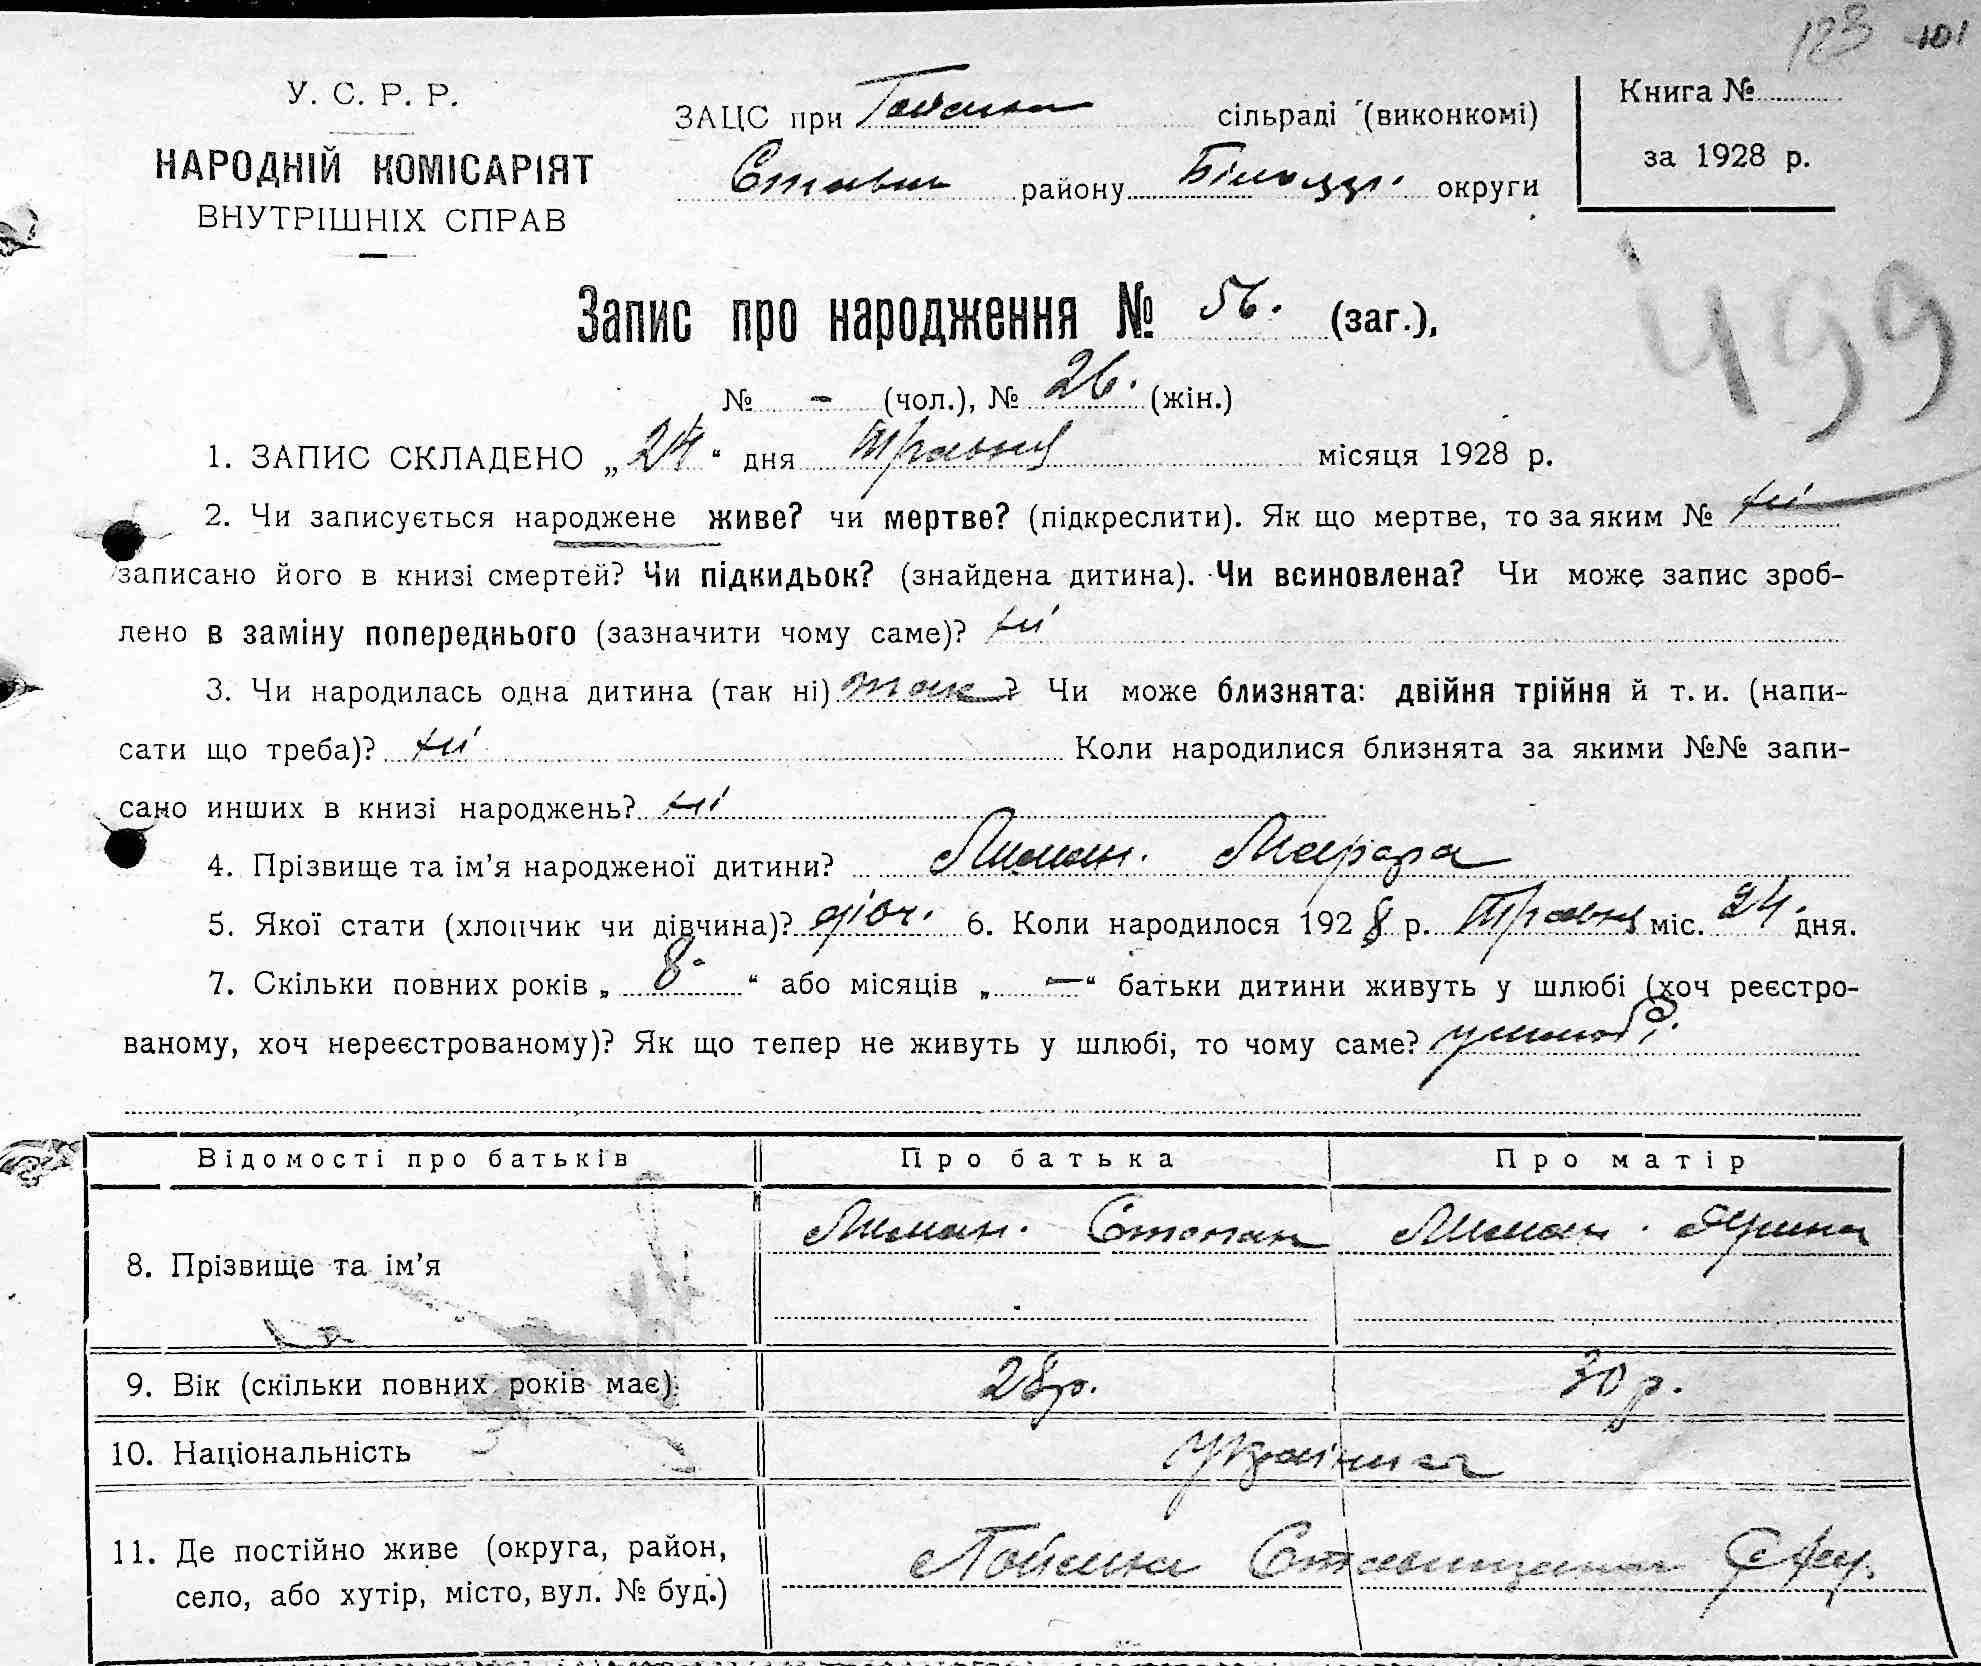 123 101
У. С. Р. Р.
НАРОДНІЙ КОМІСАРІЯТ
ВНУТРІШНІХ СПРАВ
ЗАЦС при сільраді (виконкомі)
району округи
Книга №
за 1928 р.
499
Запис про народження № 56. (заг.),
№ - (чол.), № 26. (жін.)
1. ЗАПИС СКЛАДЕНО „24“ дня травня місяця 1928 р.
2. Чи записується народжене живе? чи мертве? (підкреслити). Як що мертве, то за яким № ні
записано його в книзі смертей? Чи підкидьок? (знайдена дитина). Чи всиновлена? Чи може запис зроб-
лено в заміну попереднього (зазначити чому саме)? ні
3. Чи народилась одна дитина (так ні) так? Чи може близнята: двійня трійня й т. и. (напи-
сати що треба)? ні Коли народилися близнята за якими №№ запи-
сано инших в книзі народжень? ні
4. Прізвище та ім’я народженої дитини? Лиман.
5. Якої стати (хлопчик чи дівчина)? дівч. 6. Коли народилося 1928 р. Травня міс. 24. дня.
7. Скільки повних років „ 8 “ або місяців „ — “ батьки дитини живуть у шлюбі (хоч реєстро-
ваному, хоч нереєстрованому)? Як що тепер не живуть у шлюбі, то чому саме? у шлюбі.
Відомості про батьків Про батька Про матір
8. Прізвище та ім’я Лиман. Степан Лиман. Ярина
9. Вік (скільки повних років має) 28 р. 30 р.
10. Національність
11. Де постійно живе (округа, район,
село, або хутір, місто, вул. № буд.)